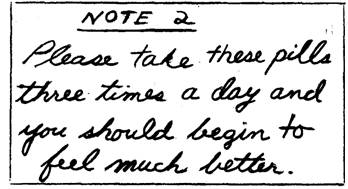 NOTE 2
Please take these pills
three times a day and
you should begin to
feel much better.